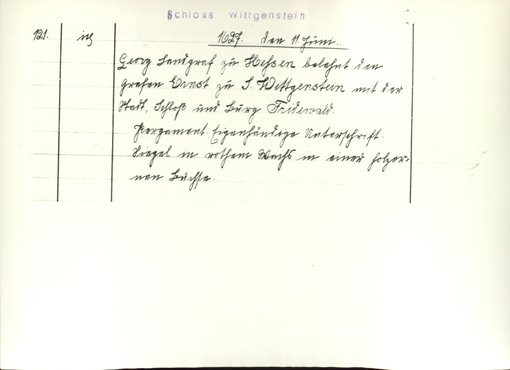 Schloss Wittgenstein
121.
1627. den 11. Juni.
Georg Landgraf zu Hessen belehnt den
Grafen Ernst zu S. Wittgenstein mit der
Stadt, Schloß und Burg Fridewald.
Pergament Eigenhändige Unterschrift.
Siegel in rothem Wachs in einer holzer-
nen Büchse